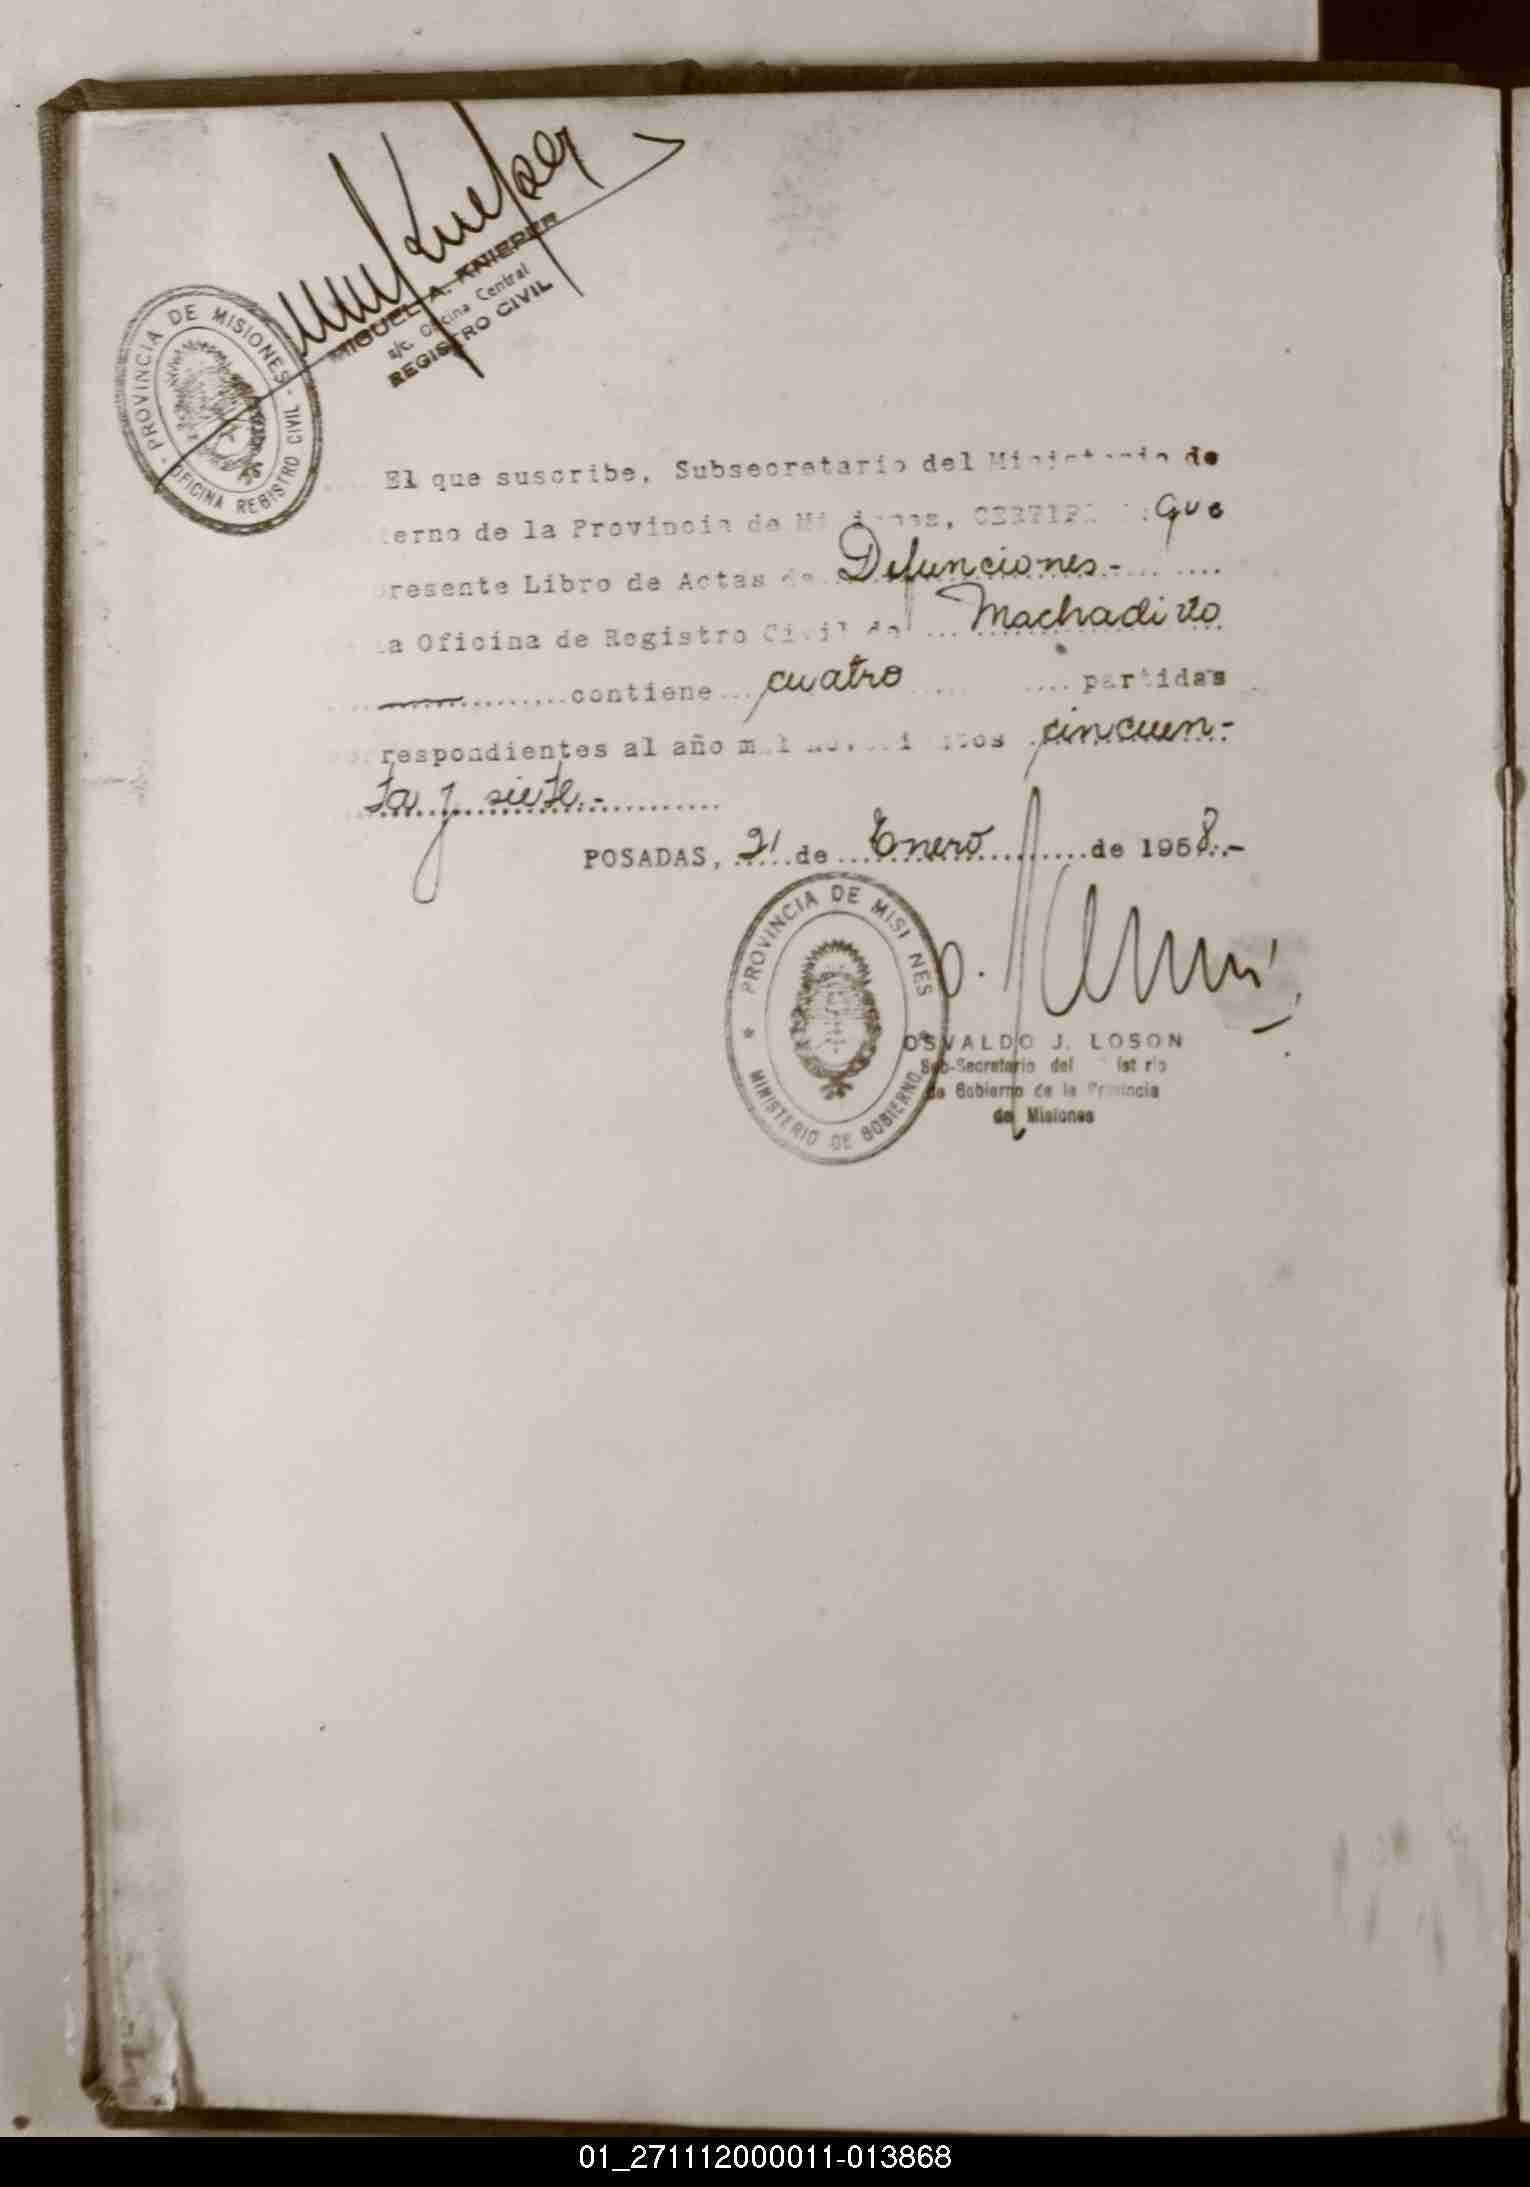 MIGUEL A. KNIEPER
a/c. Oficina Central
REGISTRO CIVIL
PROVINCIA DE MISIONES
OFICINA REGISTRO CIVIL
El que suscribe, Subsecretario del Ministerio de
erno de la Provincia de Misiones, CERTIFI Que
presente Libro de Actas de Defunciones.-
la Oficina de Registro Civil de Machadito
contiene cuatro partidas
respondientes al año mil novecientos cincuen-
ta y siete.-
POSADAS, 21 de Enero de 1958.-
PROVINCIA DE MISI NES
MINISTERIO DE GOBIERNO
OSVALDO J. LOSON
Sub-Secretario del ist rio
de Gobierno de la Provincia
de Misiones
01_271112000011-013868